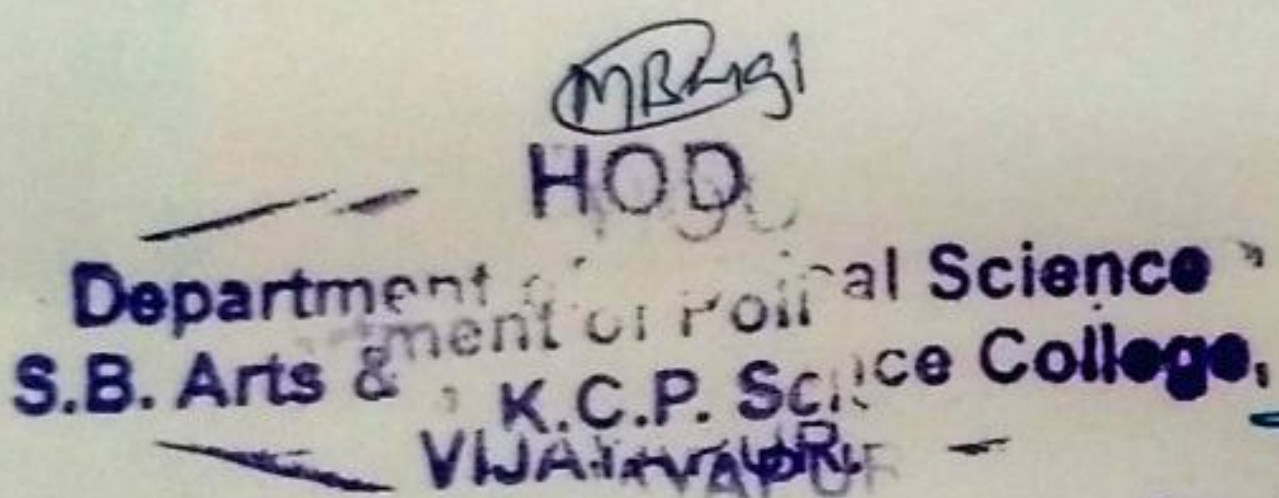 HOD
Department of Political Science
S.B. Arts & K.C.P. Science College,
VIJAYAPUR